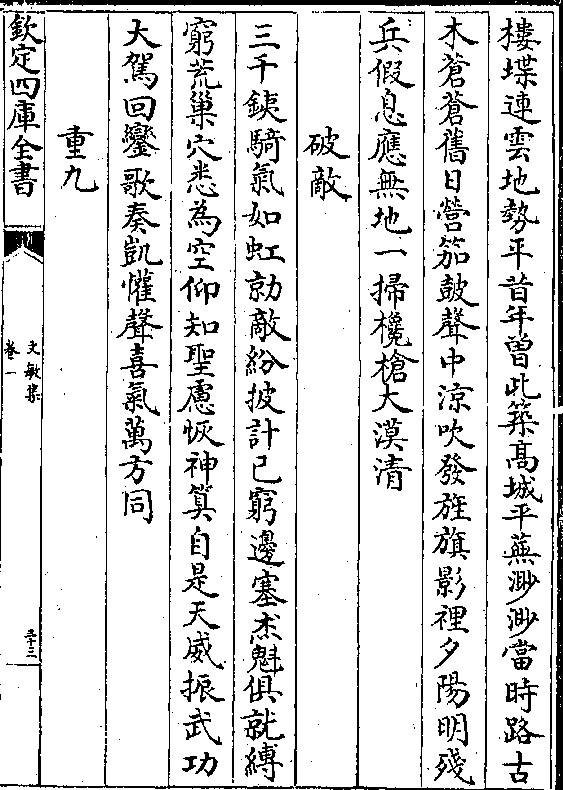 樓堞連雲地勢平昔年曽此築髙城平蕪渺渺當時路古
木蒼蒼舊日營笳鼓聲中涼吹發旌旗影裡夕陽明殘
兵假息應無地一掃欃槍大漠清
破敵
三千鐵騎氣如虹勍敵紛披計已窮邊塞杰魁俱就縛
窮荒巢穴悉為空仰知聖慮恢神算自是天威振武功
大駕回鑾歌奏凱懽聲喜氣萬方同
重九
欽定四庫全書
文敏集
卷一
三十三